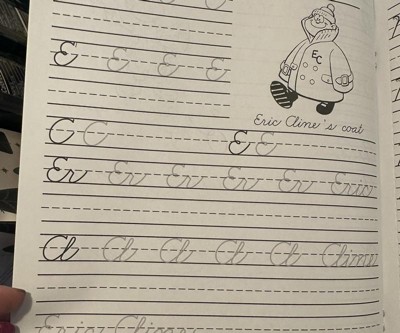 E E E E
EC
Eric Cline's coat
C C E E
Er Er Er Er Er Eric
Cl Cl Cl Cl Cl